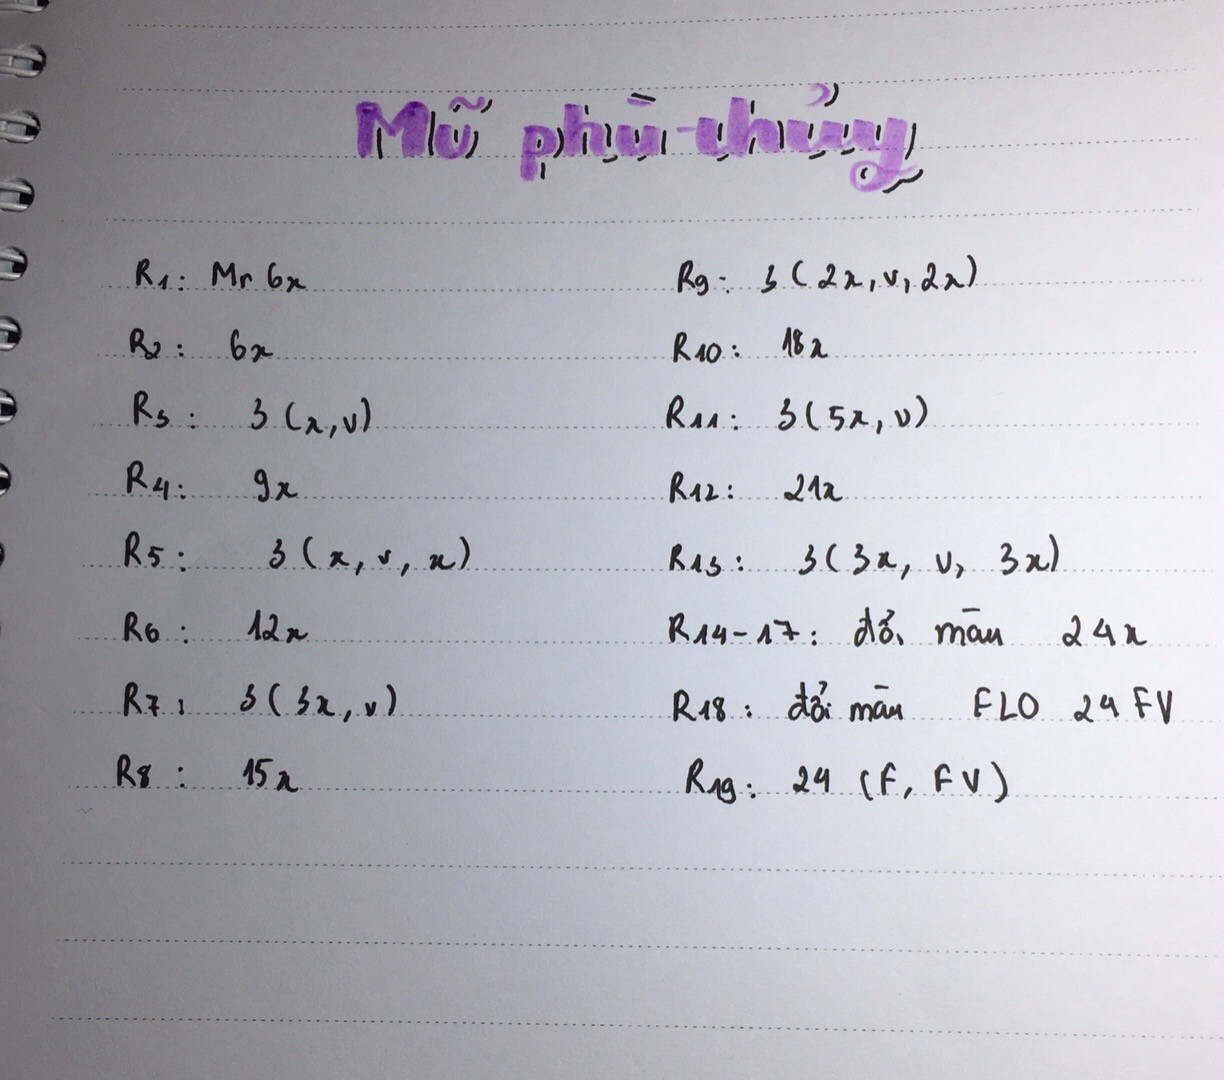 Mũ phù thủy
R1: Mr 6x
R2: 6x
R3: 3 (x,v)
R4: 9x
R5: 3 (x, v, x)
R6: 12x
R7: 3 (3x, v)
R8: 15x
R9: 3 (2x, v, 2x)
R10: 18x
R11: 3(5x, v)
R12: 21x
R13: 3(3x, v, 3x)
R14-17: đổi màu 24x
R18: đổi màu FLO 24 FV
R19: 24 (F, FV)